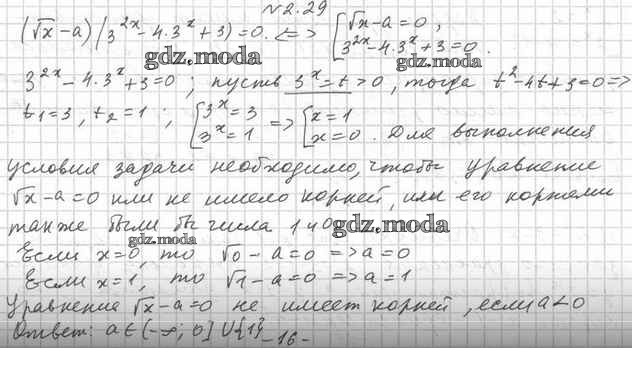 №2.29
(√x-a)(3^2x-4.3^x+3)=0. <=> [√x-a=0,
3^2x-4.3^x+3=0.
gdz.moda gdz.moda
3^2x-4.3^x+3=0; пусть 3^x=t>0, тогда t²-4t+3=0=>
t1=3, t2=1; [3^x=3 3^x=1 => [x=1 x=0. Для выполнения
условия задачи необходимо, чтобы уравнение
√x-a=0 или не имело корней, или его корнями
также были бы числа 1 и 0
gdz.moda gdz.moda
Если x=0, то √0-a=0=>a=0
Если x=1, то √1-a=0=>a=1
Уравнение √x-a=0 не имеет корней, если a<0
Ответ: a∈(-∞; 0]∪{1}
-16-